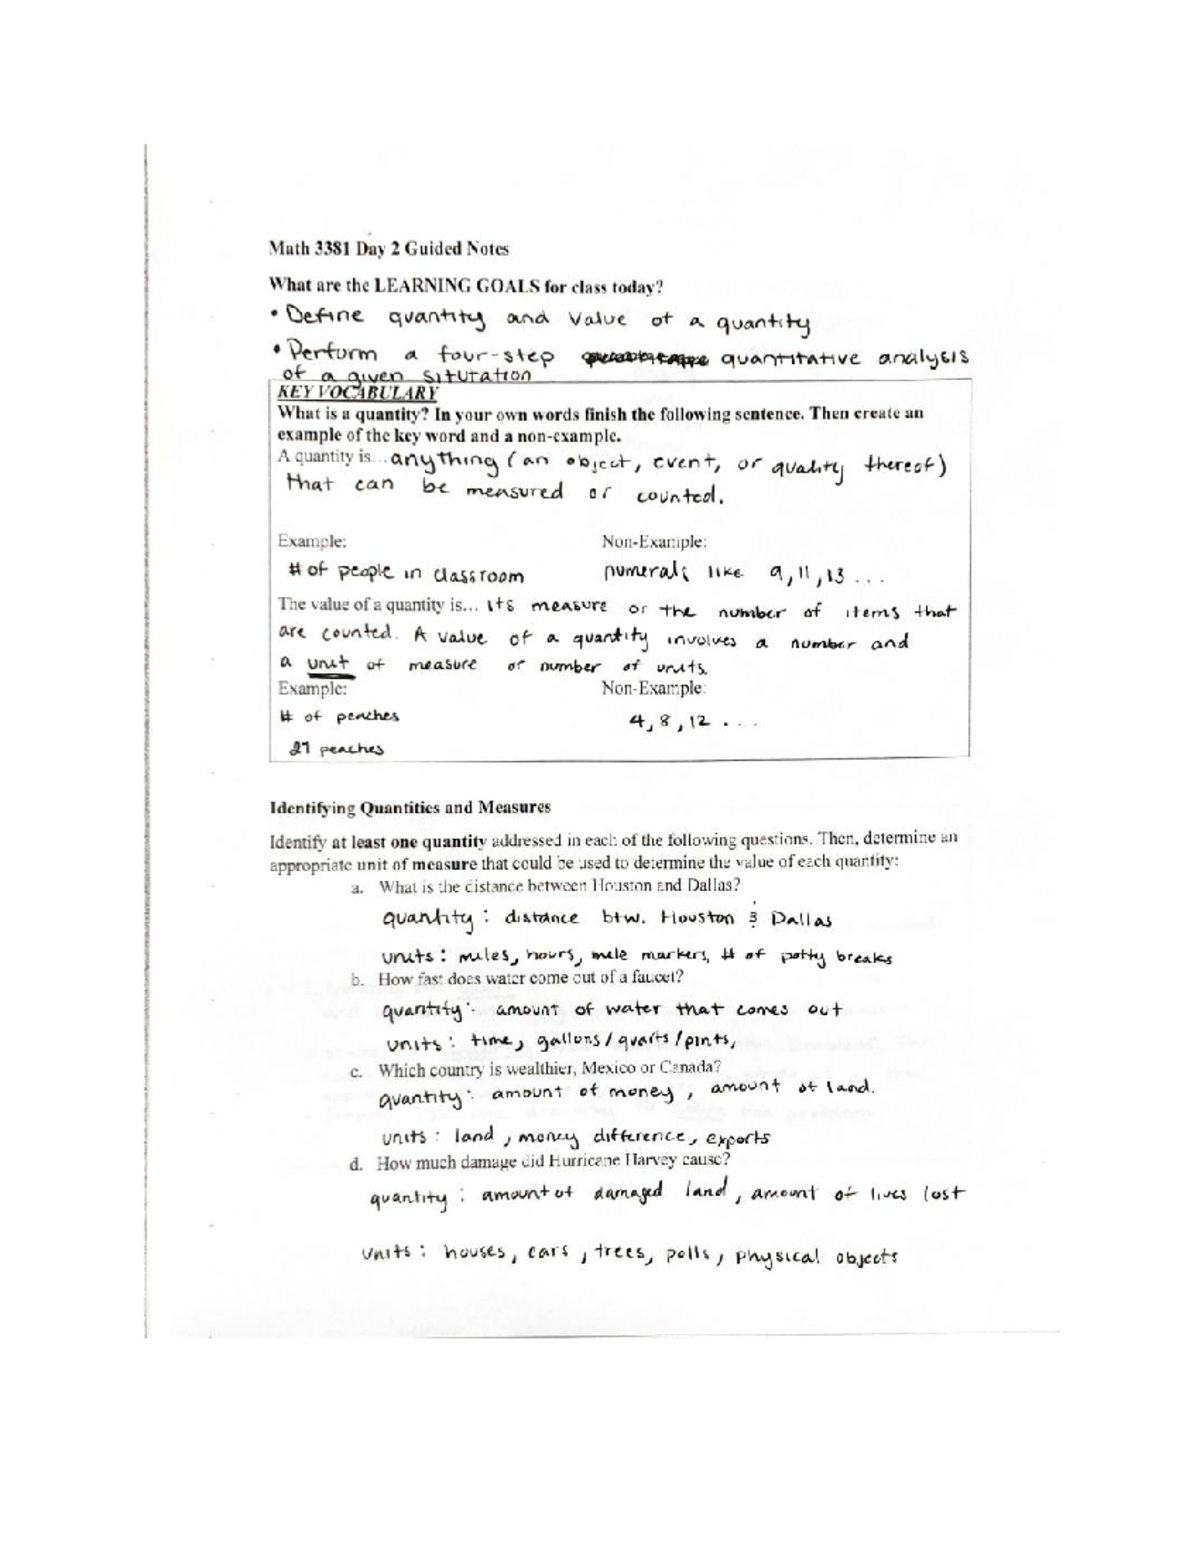 Math 3381 Day 2 Guided Notes
What are the LEARNING GOALS for class today?
• Define quantity and value of a quantity
• Perform a four-step quantitative analysis
of a given situtation
KEY VOCABULARY
What is a quantity? In your own words finish the following sentence. Then create an
example of the key word and a non-example.
A quantity is... anything (an object, event, or quality thereof)
that can be measured or counted.
Example: Non-Example:
# of people in classroom numerals like 9, 11, 13 ...
The value of a quantity is... its measure or the number of items that
are counted. A value of a quantity involves a number and
a unit of measure or number of units.
Example: Non-Example:
# of peaches 4, 8, 12 ...
27 peaches
Identifying Quantities and Measures
Identify at least one quantity addressed in each of the following questions. Then, determine an
appropriate unit of measure that could be used to determine the value of each quantity:
a. What is the distance between Houston and Dallas?
quantity: distance btw. Houston & Dallas
units: miles, hours, mile markers, # of potty breaks
b. How fast does water come out of a faucet?
quantity: amount of water that comes out
units: time, gallons/quarts/pints,
c. Which country is wealthier, Mexico or Canada?
quantity: amount of money, amount of land.
units: land, money difference, exports
d. How much damage did Hurricane Harvey cause?
quantity: amount of damaged land, amount of lives lost
units: houses, cars, trees, polls, physical objects